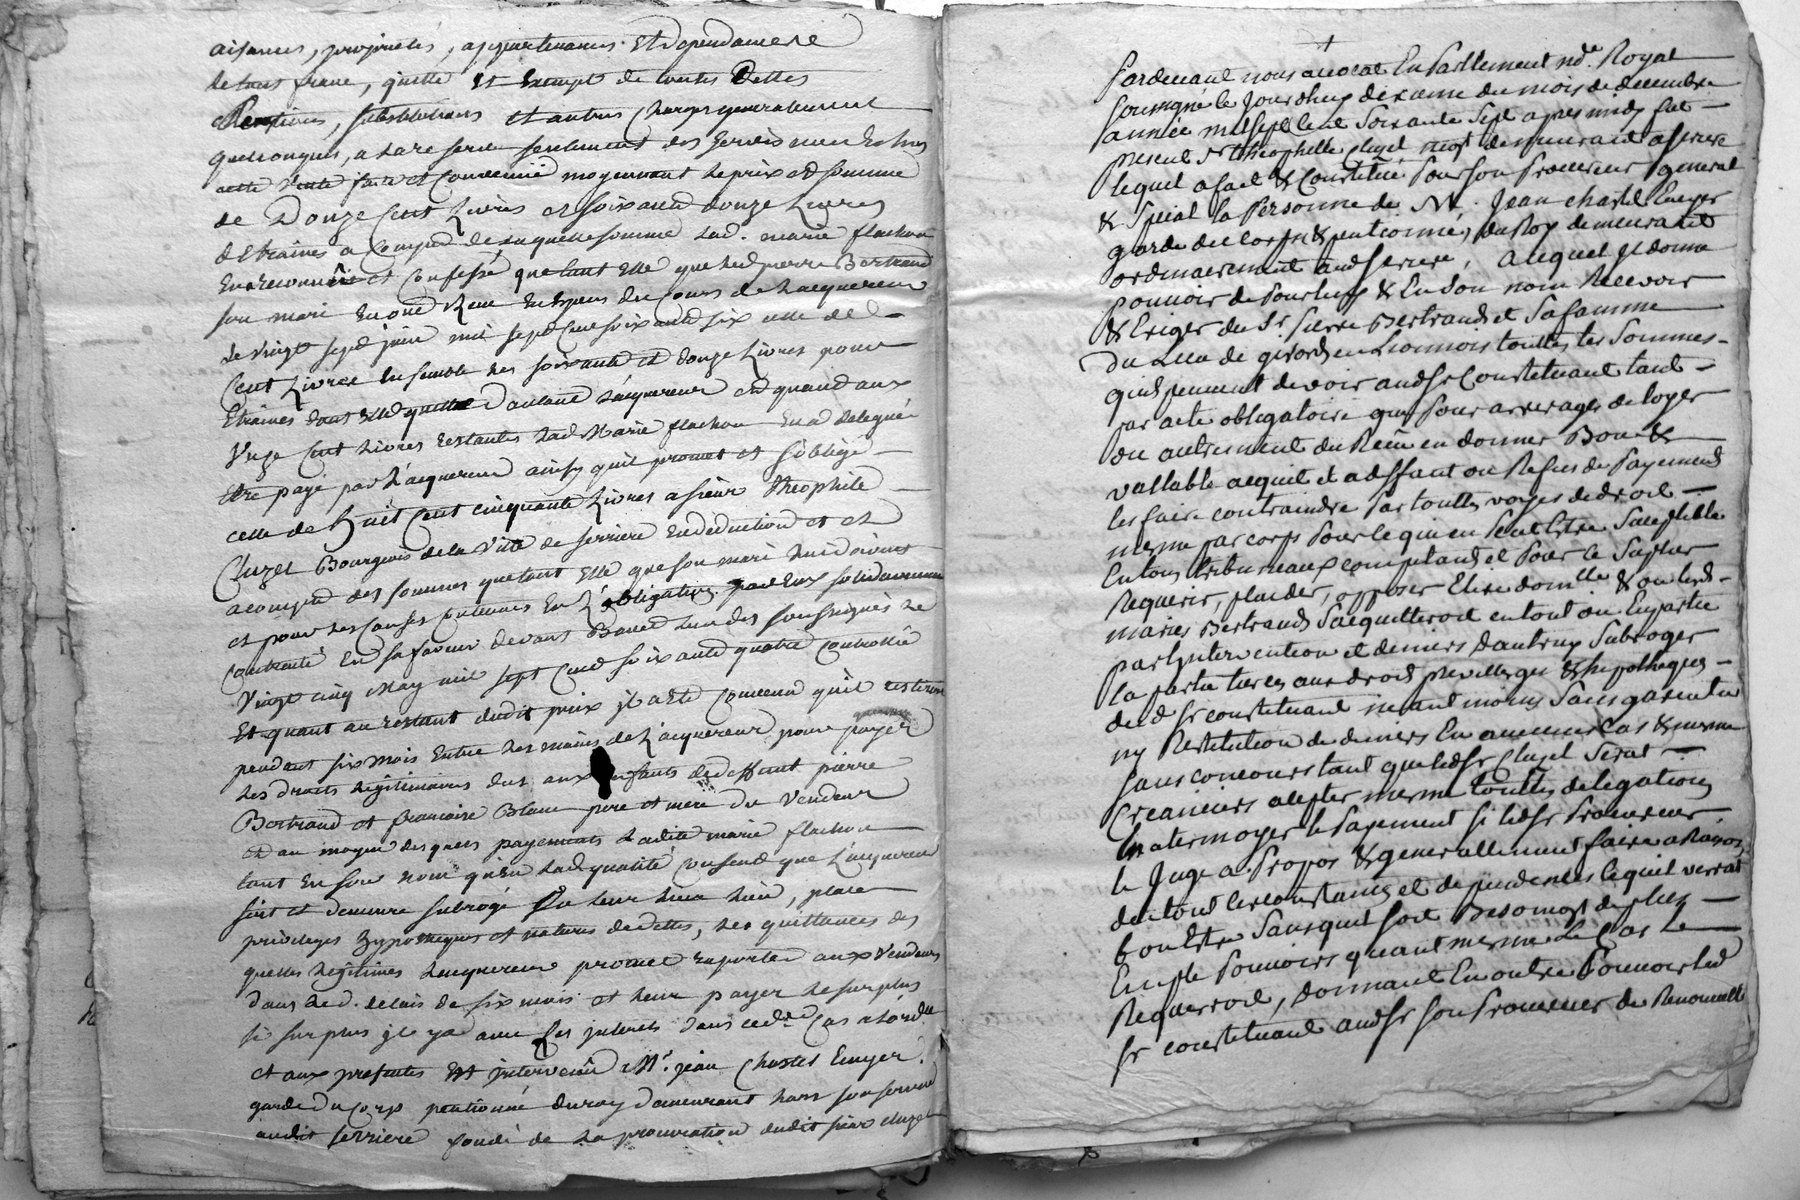 aisances, proprietés, appartenances Et dependances
de tout franc, quitte Et Exempt de toutes Dettes
substitutions et autres Charges generalement
quelconques, a la reserve seulement des servis
cette Vente faite et Convenue moyennant le prix et somme
de Douze Cent Livres et soixante douze Livres
d'Etraines a Compte de laquelle somme lad. marie flachon
En a reconnu et Confessé que tant Elle que led pierre Bertrand
son mary En ont Reçu du Cours de L'acquereur
le vingt sept juin mil sept Cent soixante six celle de
Cent Livres Ensemble les soixante et douze Livres pour
Etraines dont Elle quitte d'autant L'acquereur et quand aux
Unze Cent Livres restantes lad Marie flachon En a delegué
Etre payé par L'acquereur ainsy quil promet et s'oblige
celle de huit Cent cinquante Livres a sieur theophile
Cluzel Bourgeois de la Ville de serriere En deduction et et
acompte des sommes que tant Elle que son mari lui doivent
et pour les Causes Contenues En L'obligation par Eux solidairement
Contracté En sa faveur devant Bonnet L'un des soussignés le
Vingt cinq May mil sept Cent soixante quatre Controllée
Et quant au restant dudit prix il a été Convenu qu'il restera
pendant six mois Entre les mains de L'acquereur pour payer
les droits legitimaires dus aux Enfants de deffunt pierre
Bertrand et francoise Blanc pere et mere du Vendeur
et au moyen des quels payements Ladite marie flachon
tant En son nom qu'En lad qualité Consent que L'acquereur
soit et demeure subrogé En leur lieu, place
privileges hypotheques et natures de dettes, les quittances des
quelles Legitimes L'acquereur promet raporter aux Vendeurs
dans led. delais de six mois et leur payer le surplus
si surplus il y a avec les interets dans ledt Cas
et aux presentes Est intervenû Mr. jean Chastel Ecuyer
garde du Corps pentionné du roy demeurant hors son service
audit serriere fondé de La procuration dudit sieur Cluzel
Pardevant nous avocat En Parllement nore Royal
soussigné le Jourdhuy dixieme du mois de decembre
année mil sept cent soixante sept apres midy fut
present Sr theophille Cluzel demeurant a serriere
lequel a fait & Constitué pour son Procureur general
& special la Personne de M. Jean chastel Ecuyer
garde du corps & pentionné du Roy demeurant
ordinairement audt serriere, auquel Il donne
pouvoir de pour luy & En son nom Recevoir
& Exiger du Sr Pierre Bertrand et sa famme
du Lieu de en Lionnois touttes les sommes
quils peuvent devoir audt Sr Constituant tant
par acte obligatoire que pour arrerages de loyer
ou autrement du Reçu en donner Bon &
vallable acquit et a deffaut ou Refus de Payement
les faire contraindre Par touttes voyes de droit
mesme par corps pour le qui en peut Etre Suceptible
En tous tribunaux competants et pour ce sujet
Requerir, plaider, opposer Elire domille & ou lesd
mariés Bertrand s'acquitteroit en tout ou En partie
par Intervention et deniers dautruy Subroger
la partie tierce aux droits privilleges & hipotheques
dud Sr constituant neantmoins sans garentie
ny Restitution de deniers En aucun cas & mesme
sans concours tant que ledt Sr Cluzel serat
Creancier accepter mesme touttes delegations
En atermoyer le Payement si ledt Sr Procureur
le Juge a Propos & generallement faire a Raison
de tout circonstances et dependances le quil verrat
bon Etre Sans quil soit Besoin de plus
Ample Pouvoir quant mesme Le Cas Le
Requerroit, donnant En outre Pouvoir led
Sr constituant audt Sr son Procureur de Renouveller